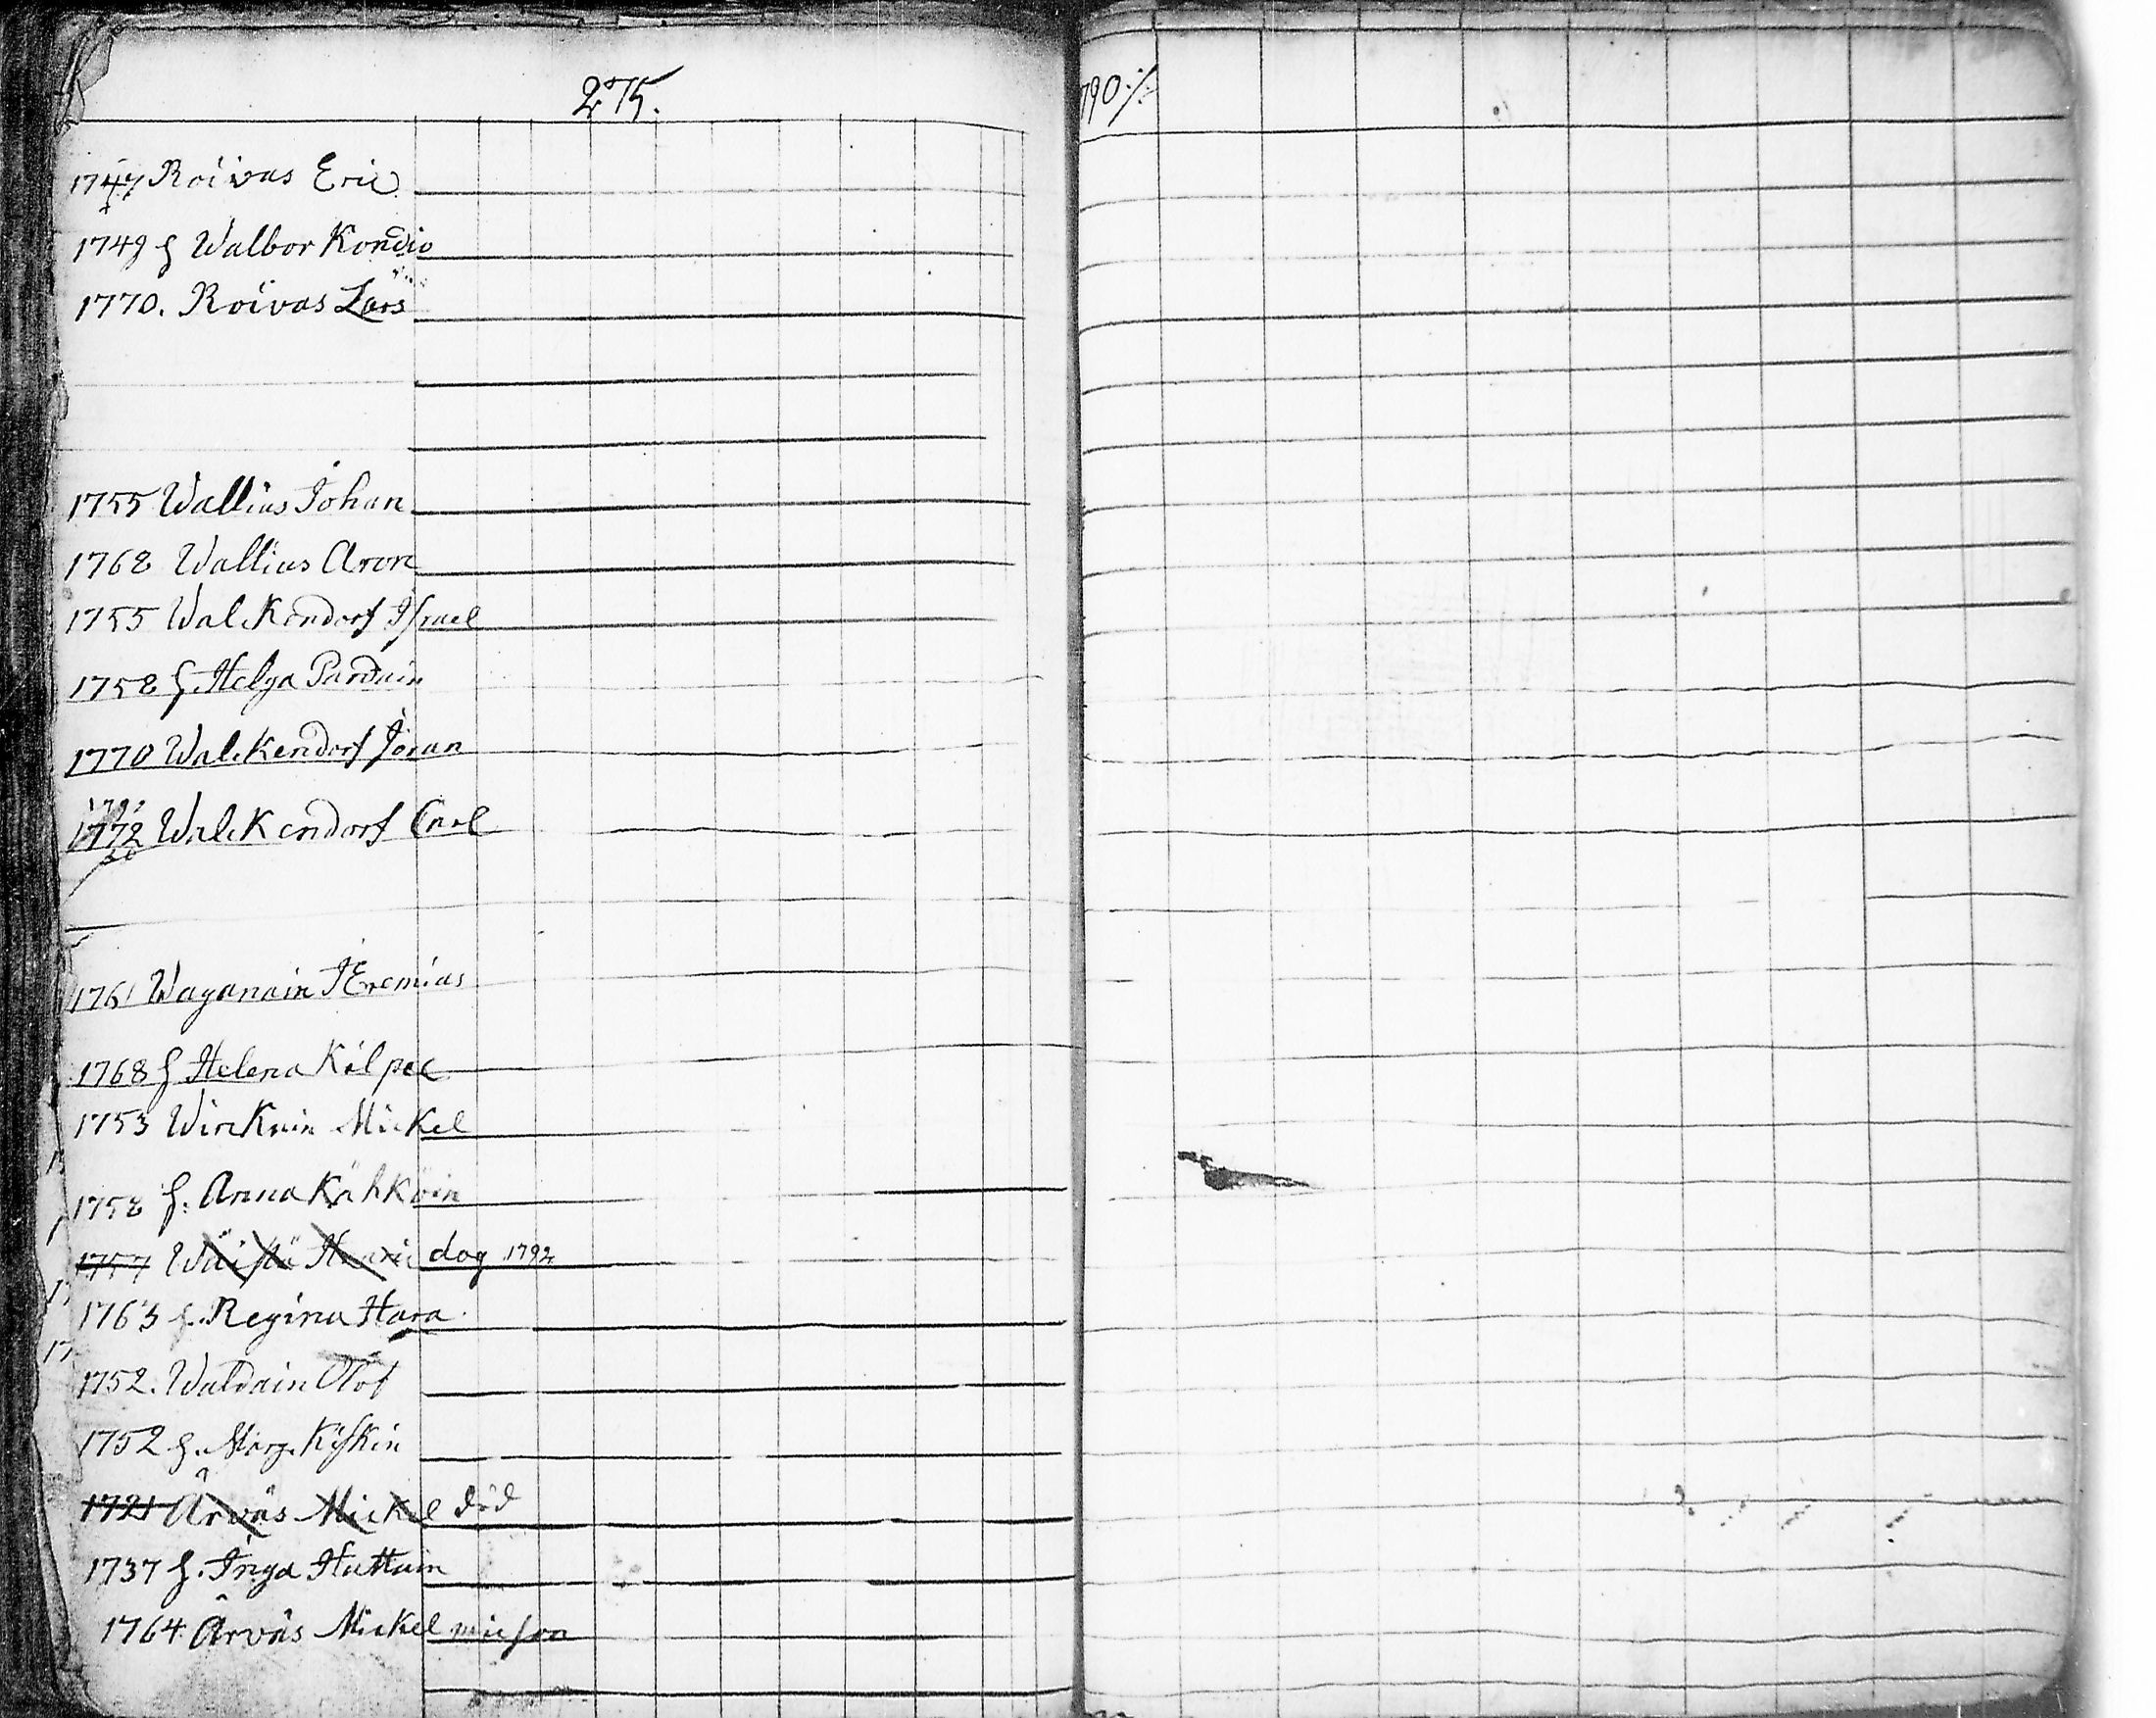 275.
790 ./.
1747 Roivas Eric
1749 h Walbor Kondio
1770. Roivas Lars
1755 Wallius Johan
1768 Wallius Aron
1755 WalcKendorf Israel
1758 h. Helga Pardain
1770 WalcKendorf Jöran
1772 WalcKendorf Carl
1761 Waganain JEremias
1768 h Helena Kilpee
1753 WircKuin MicKel
1758 h. Anna KähKöin
1757 Wäistä Henric dog 1792
1763 h. Regina Hara
1752. Waldain Olof
1752 h. Marg. KysKin
1721 Ârväs MicKel död
1737 h. Inga Huttuin
1764 Ârväs MicKel micson